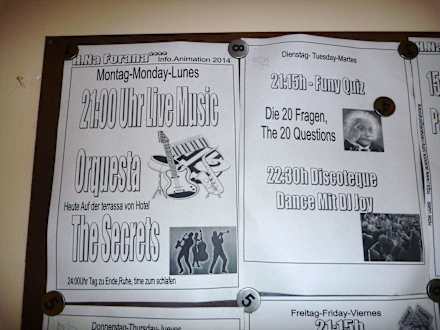 H.Na Forana****
Info.Animation 2014
Montag-Monday-Lunes
21:00 Uhr Live Music
Orquesta
Heute Auf der terrassa von Hotel
The Secrets
24:00Uhr Tag zu Ende,Ruhe, time zum schlafen
Dienstag- Tuesday-Martes
21:15h - Funy Quiz
Die 20 Fragen,
The 20 Questions
22:30h Discoteque
Dance Mit DJ Joy
Donnerstag-Thursday-Jueves
Freitag-Friday-Viernes
21:15h